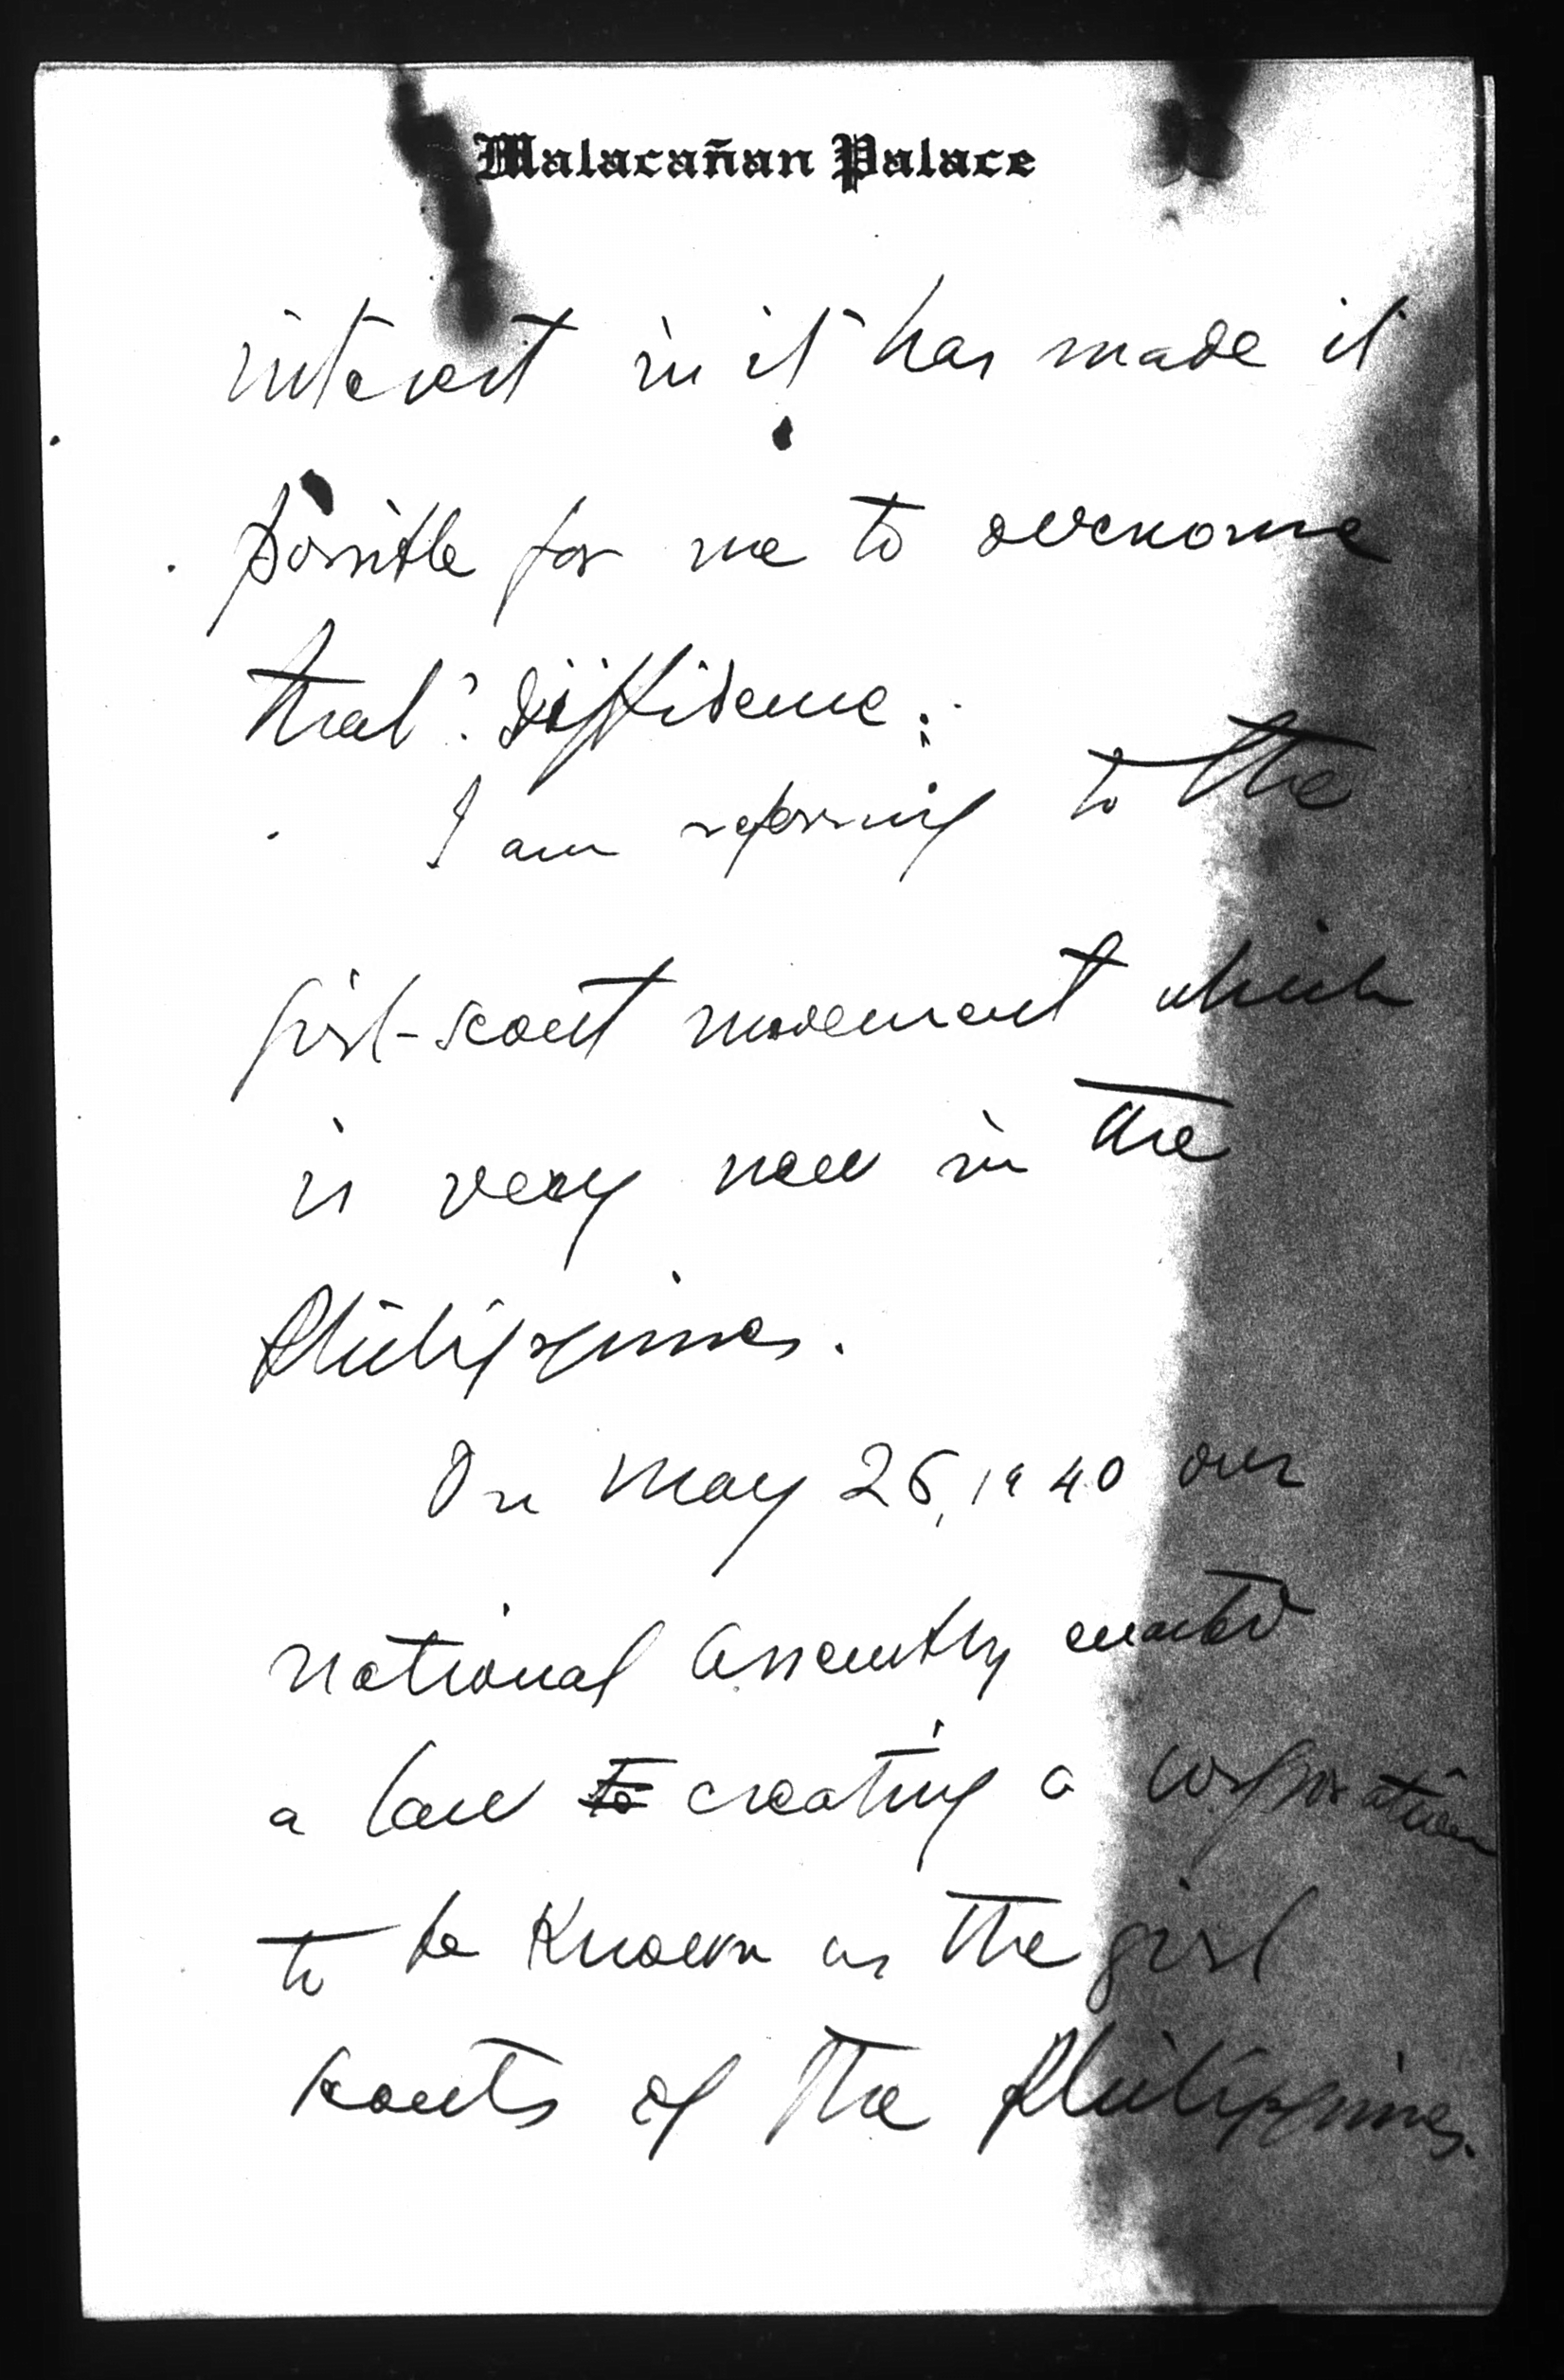 Malacañan Palace
interest in it has made it
possible for me to overcome
that diffidence.
I am referring to the
girl-scout movement which
is very new in the
Philippines.
On May 26, 1940 our
national assembly enacted
a law to creating a corporation
to be known as the girl
scouts of the Philippines.